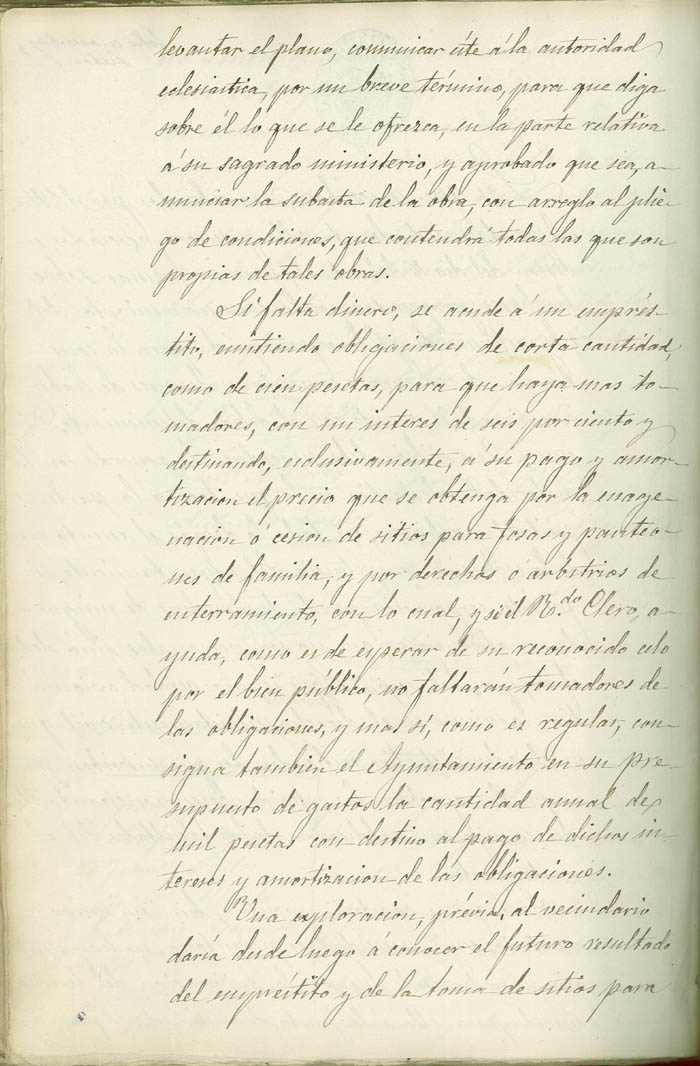 levantar el plano, comunicar éste á la autoridad
eclesiastica, por un breve término, para que diga
sobre él lo que se le ofrezca, en la parte relativa
á su sagrado ministerio, y aprobado que sea, a-
nunciar la subasta de la obra, con arreglo al plie-
go de condiciones, que contendrá todas las que son
propias de tales obras.
Si falta dinero, se acude á un emprés-
tito, emitiendo obligaciones de corta cantidad,
como de cien pesetas, para que haya mas to-
madores, con un interes de seis por ciento y
destinando, exclusivamente, á su pago y amor-
tizacion el precio que se obtenga por la enage-
nación ó cesion de sitios para fosas y panteo-
nes de familia, y por derechos ó arbitrios de
enterramiento, con lo cual, y si el R.do Clero, a-
yuda, como es de esperar de su reconocido celo
por el bien público, no faltarán tomadores de
las obligaciones, y mas si, como es regular, con-
signa tambien el Ayuntamiento en su pre-
supuesto de gastos la cantidad anual de
mil pesetas con destino al pago de dichos in-
tereses y amortizacion de las obligaciones.
Una exploracion, prévia, al vecindario
daría desde luego á conocer el futuro resultado
del empréstito y de la toma de sitios para